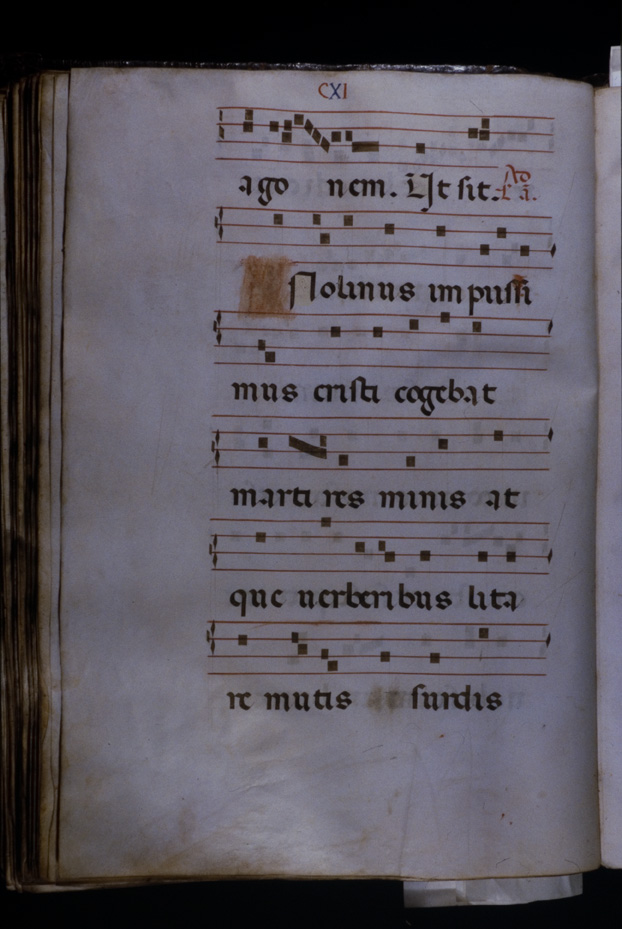 CXI
ago nem. Ut sit.
Nolinus im pussi
mus cristi cogebat
marti res minis at
que uerberibus lita
re mutis surdis